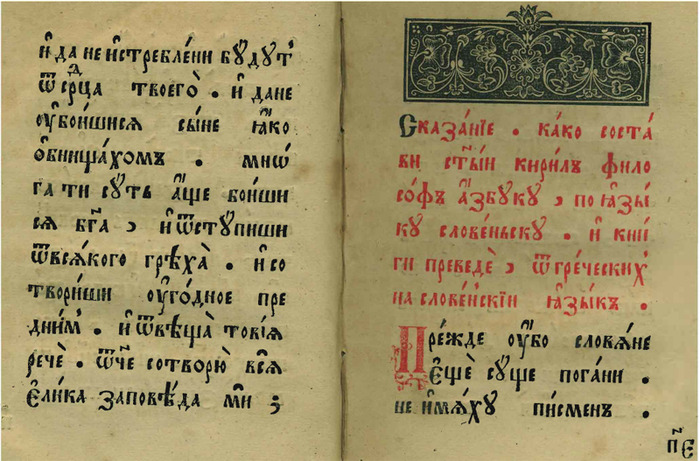 и҆ да не и҆стреблени бꙋ́дꙋтъ
ѿ се́рⷣца твоегѡ̀ . и҆ да не
ᲂу҆бои́шися сы́не ꙗ҆́ко
ѡ҆бнища́хомъ . мнѡ́
га ти сꙋть а҆́ще бои́ши
ся бг҃а , и҆ ѿстꙋ́пиши
ѿ всѧ́кого грѣха̀ . и҆ со
твори́ши ᲂу҆го́дное пре
дни́мъ . и҆ ѿвѣща̀ то́вїя
речѐ . ѿч҃е сотворю̀ всѧ̀
є҆ли́ка заповѣ́да ми ;
Сказа́нїе . ка́ко соста́
ви ст҃ы́и кири́лъ фило
со́фъ а҆́збꙋкꙋ , по ꙗ҆зы́
кꙋ слове́ньскꙋ . и҆ кни́
ги преведѐ , ѿ гре́ческихъ
на слове́нскїи ꙗ҆зы́къ .
Пре́жде ᲂу҆́бо слова́не
є҆щѐ сꙋ́ще пога́ни .
не и҆мѧ́хꙋ пи́сменъ .
п҃є